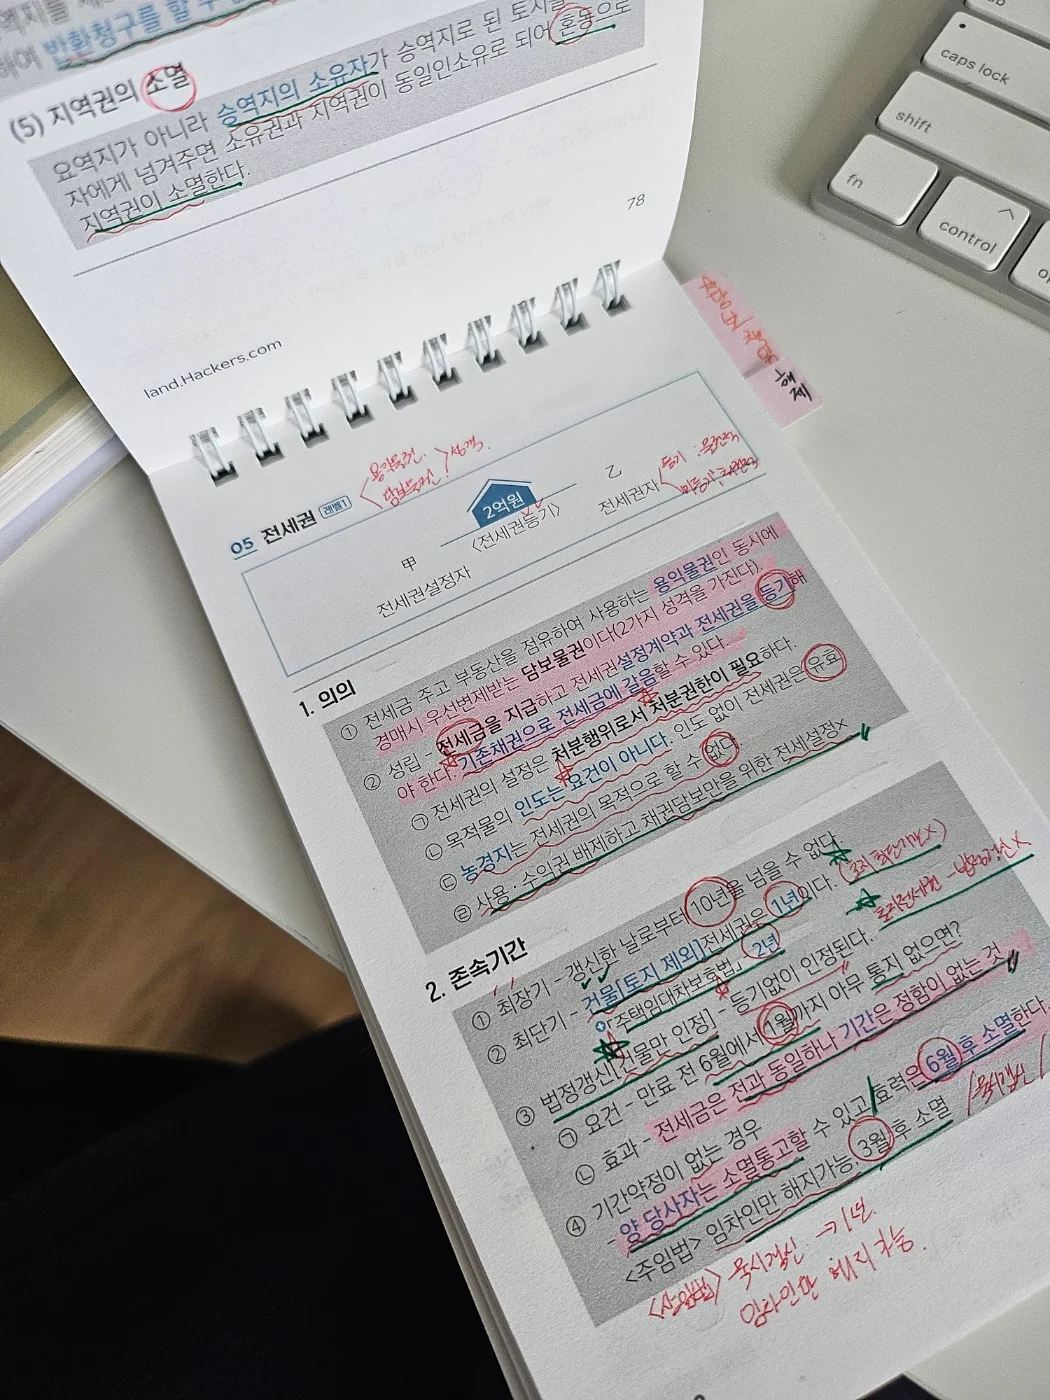 하여 반환청구를 할 수
(5) 지역권의 소멸
요역지가 아니라 승역지의 소유자가 승역지로 된 토지를
자에게 넘겨주면 소유권과 지역권이 동일인소유로 되어 혼동으로
지역권이 소멸한다.
78
land.Hackers.com
caps lock
shift
fn
control
해제
용익물권
담보물권 > 성격
05 전세권 레벨1
2억원
甲
〈전세권등기〉
乙
전세권설정자
전세권자
등기 : 물권적
미등기 : 채권적
1. 의의
① 전세금 주고 부동산을 점유하여 사용하는 용익물권인 동시에
경매시 우선변제받는 담보물권이다(2가지 성격을 가진다).
② 성립 - 전세금을 지급하고 전세권설정계약과 전세권을 등기해
야 한다. 기존채권으로 전세금에 갈음할 수 있다.
㉠ 전세권의 설정은 처분행위로서 처분권한이 필요하다.
㉡ 목적물의 인도는 요건이 아니다. 인도 없이 전세권은 유효
㉢ 농경지는 전세권의 목적으로 할 수 없다.
㉣ 사용·수익권 배제하고 채권담보만을 위한 전세설정×
2. 존속기간
① 최장기 - 갱신한 날로부터 10년을 넘을 수 없다.
② 최단기 - 건물[토지 제외]전세권은 1년이다. (토지 최단기간X)
「주택임대차보호법」 2년
토지전세권 - 법정갱신X
③ 법정갱신[건물만 인정] - 등기없이 인정된다.
㉠ 요건 - 만료 전 6월에서 1월까지 아무 통지 없으면?
㉡ 효과 - 전세금은 전과 동일하나 기간은 정함이 없는 것
④ 기간약정이 없는 경우
- 양 당사자는 소멸통고할 수 있고 효력은 6월 후 소멸한다.
<주임법> 임차인만 해지가능, 3월 후 소멸
<상임법> 묵시갱신 → 1년.
임차인만 해지가능.